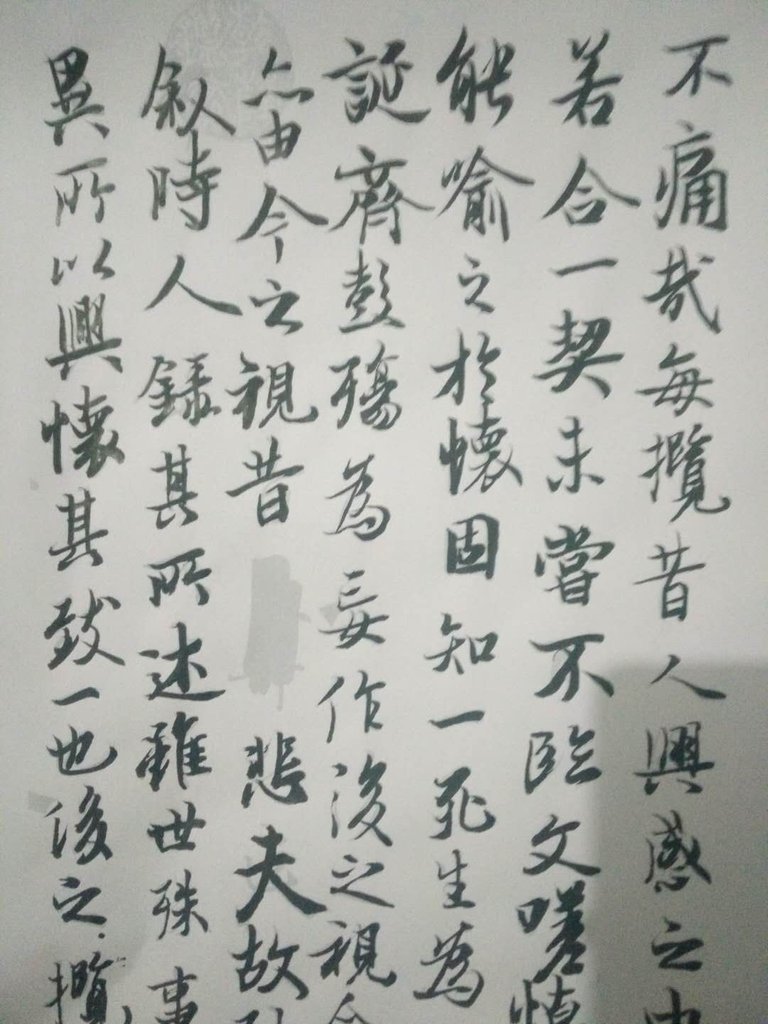 不痛哉每攬昔人興感之由
若合一契未嘗不臨文嗟悼
能喻之於懷固知一死生為
誕齊彭殤為妄作後之視今
亦由今之視昔 悲夫故列
敘時人錄其所述雖世殊事
異所以興懷其致一也後之攬